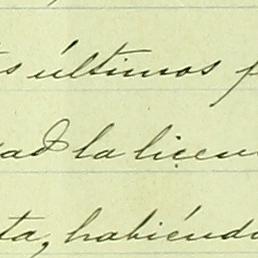 s últimos p
ad la licen
ta, habiénd